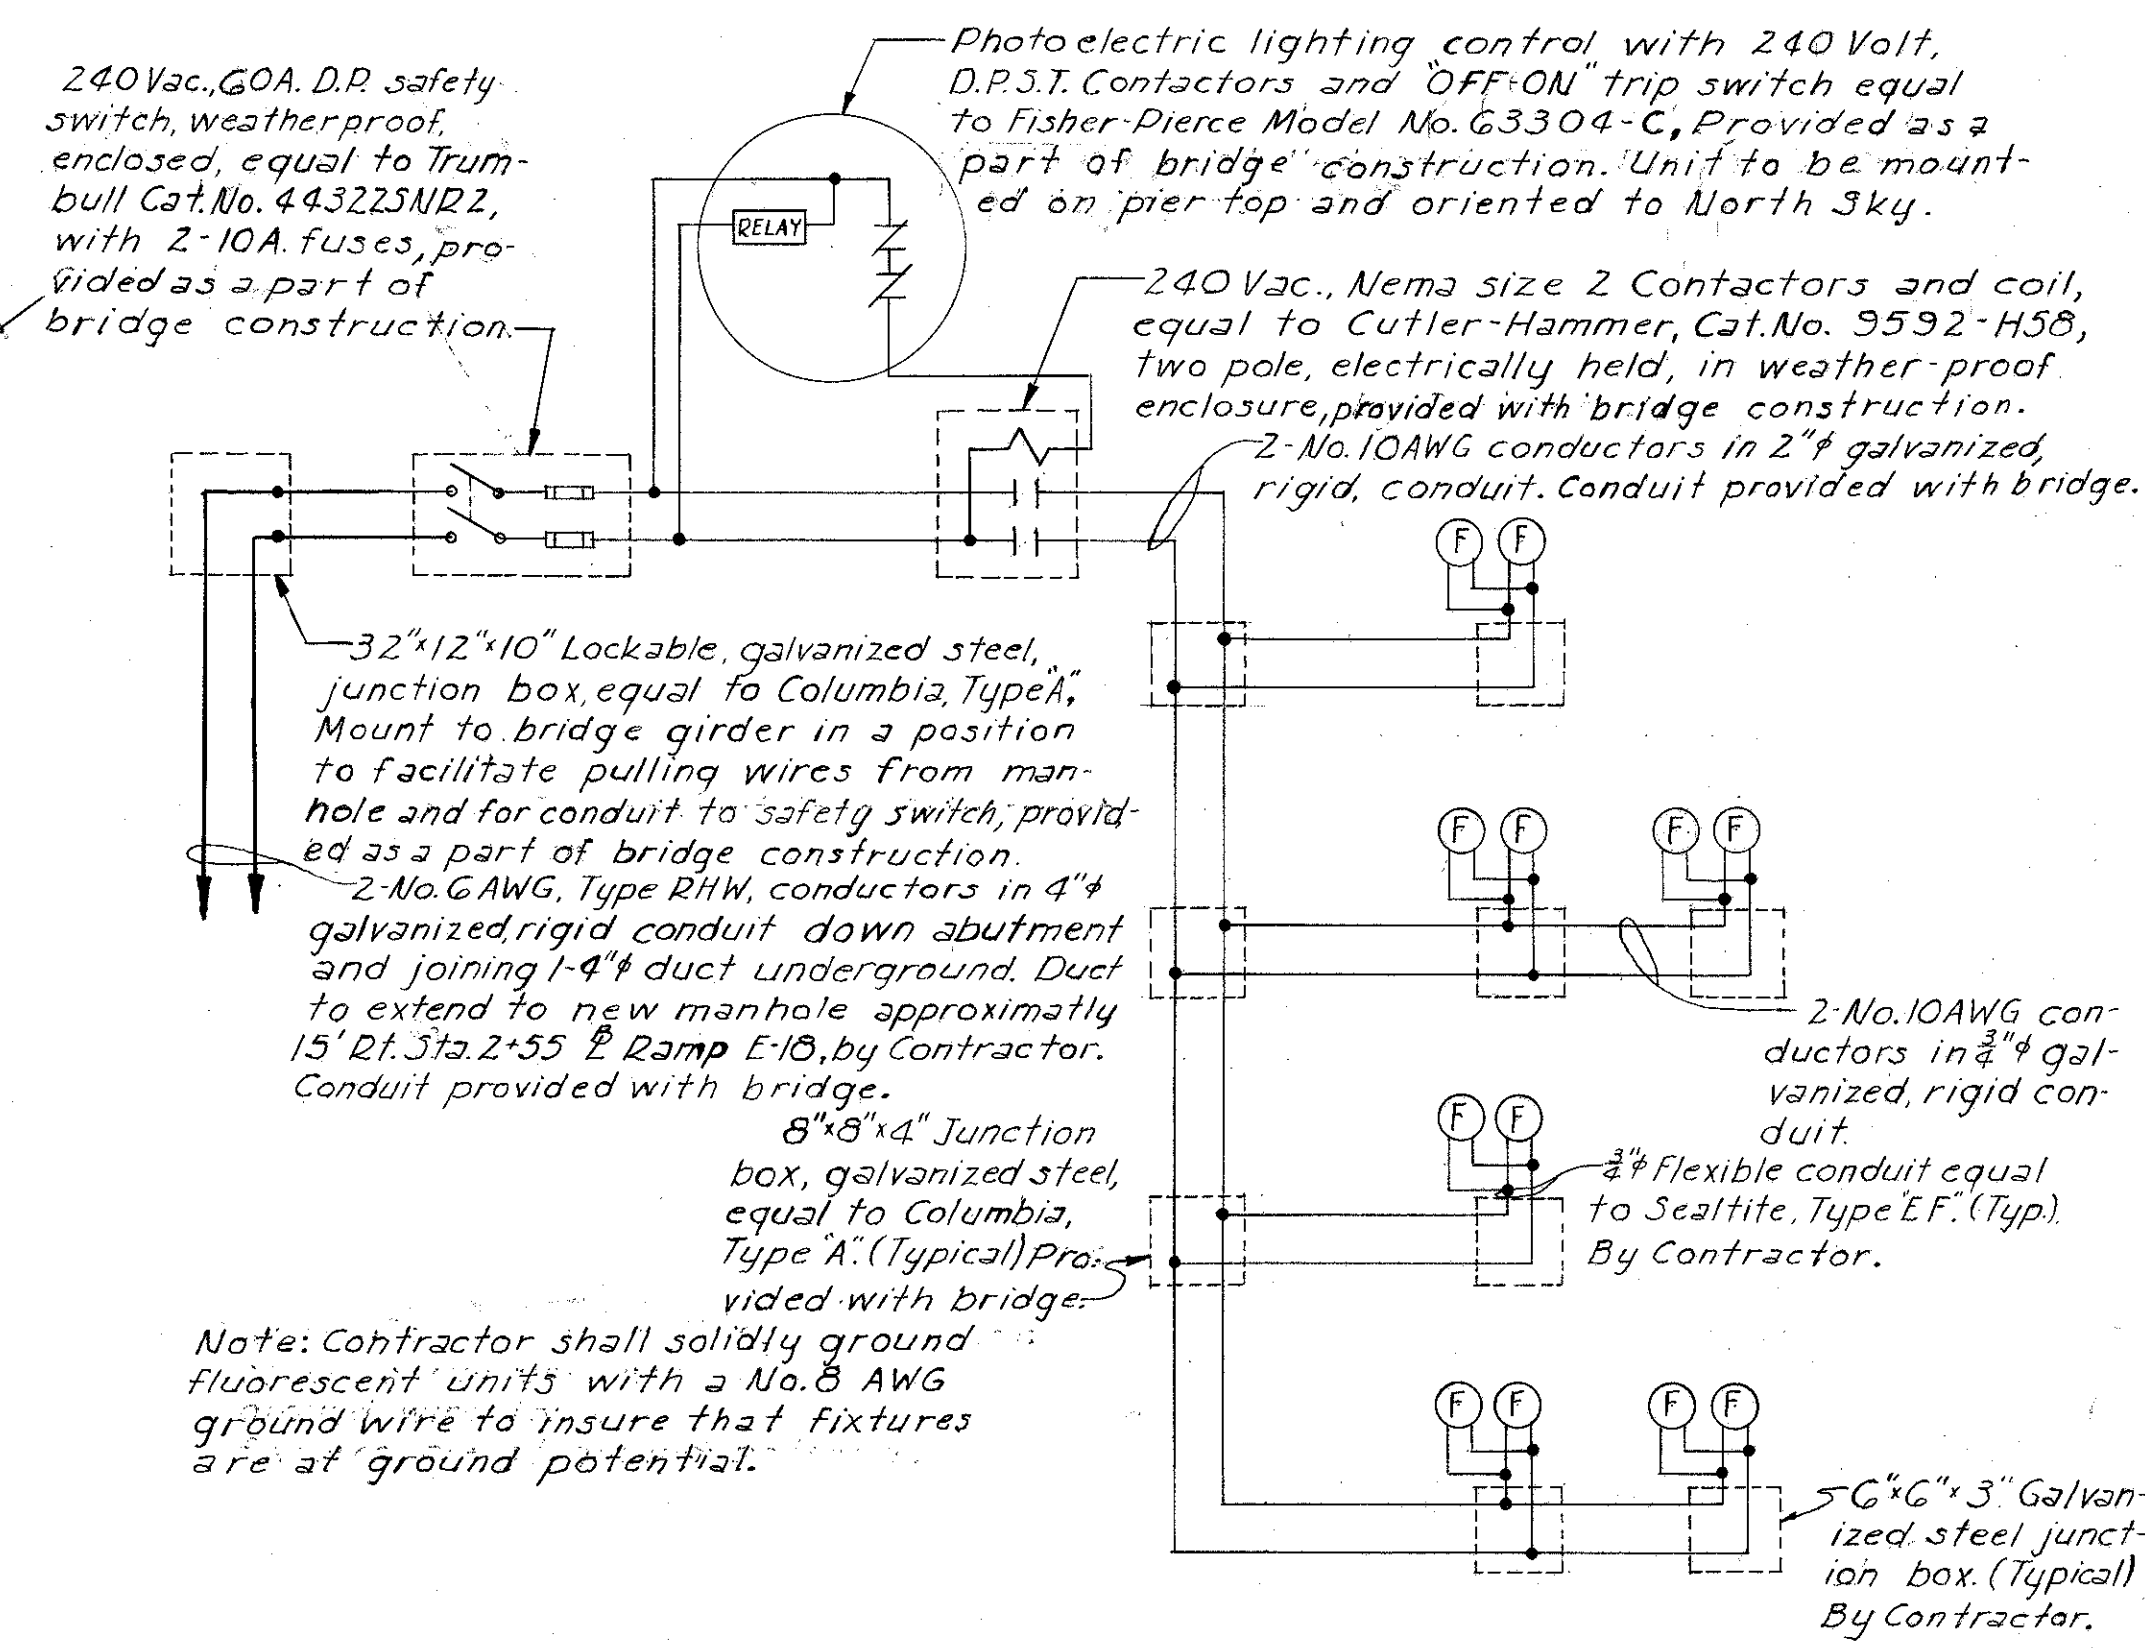 240 Vac., 60A. D.P. safety
switch, weatherproof,
enclosed, equal to Trum-
bull Cat. No. 44322SNR2,
with 2-10A. fuses, pro-
vided as a part of
bridge construction.
Photoelectric lighting control with 240 Volt,
D.P.S.T. Contactors and "OFF-ON" trip switch equal
to Fisher-Pierce Model No. 63304-C, Provided as a
part of bridge construction. Unit to be mount-
ed on pier top and oriented to North Sky.
RELAY
240 Vac., Nema size 2 Contactors and coil,
equal to Cutler-Hammer, Cat. No. 9592-H58,
two pole, electrically held, in weather-proof
enclosure, provided with bridge construction.
2-No. 10AWG conductors in 2"φ galvanized,
rigid, conduit. Conduit provided with bridge.
F F
32"x12"x10" Lockable, galvanized steel,
junction box, equal to Columbia, Type "A",
Mount to bridge girder in a position
to facilitate pulling wires from man-
hole and for conduit to safety switch, provid-
ed as a part of bridge construction.
F F F F
2-No. 6 AWG, Type RHW, conductors in 4"φ
galvanized, rigid conduit down abutment
and joining 1-4"φ duct underground. Duct
to extend to new manhole approximatly
15' Rt. Sta. 2+55 ⅊ Ramp E-18, by Contractor.
Conduit provided with bridge.
2-No. 10AWG con-
ductors in ¾"φ gal-
vanized, rigid con-
duit.
F F
8"x8"x4" Junction
box, galvanized steel,
equal to Columbia,
Type "A". (Typical) Pro-
vided with bridge.
¾"φ Flexible conduit equal
to Sealtite, Type "EF". (Typ.).
By Contractor.
Note: Contractor shall solidly ground
fluorescent units with a No. 8 AWG
ground wire to insure that fixtures
are at ground potential.
F F F F
6"x6"x3" Galvan-
ized steel junct-
ion box. (Typical)
By Contractor.